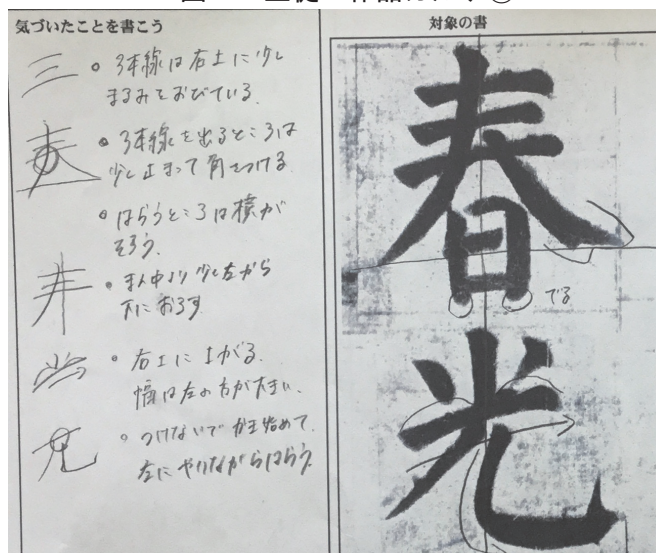 気づいたことを書こう
3本線は右上に少し
まるみをおびている。
3本線を出るところは
少し止まって角をつける
はらうところは横が
そろう。
まん中より少し左から
下におろす
右上に上がる。
幅は左の方が大きい。
つけないで
始めて、
左に
ながらはらう。
対象の書
春
でる
光